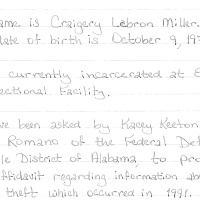 ame is Craigery Lebron Miller.
date of birth is October 9, 19
currently incarcerated at
ectional Facility.
ve been asked by Kacey Keeton
Romano of the Federal Def
le District of Alabama, to pro
ffidavit regarding information ab
theft which occurred in 1991.